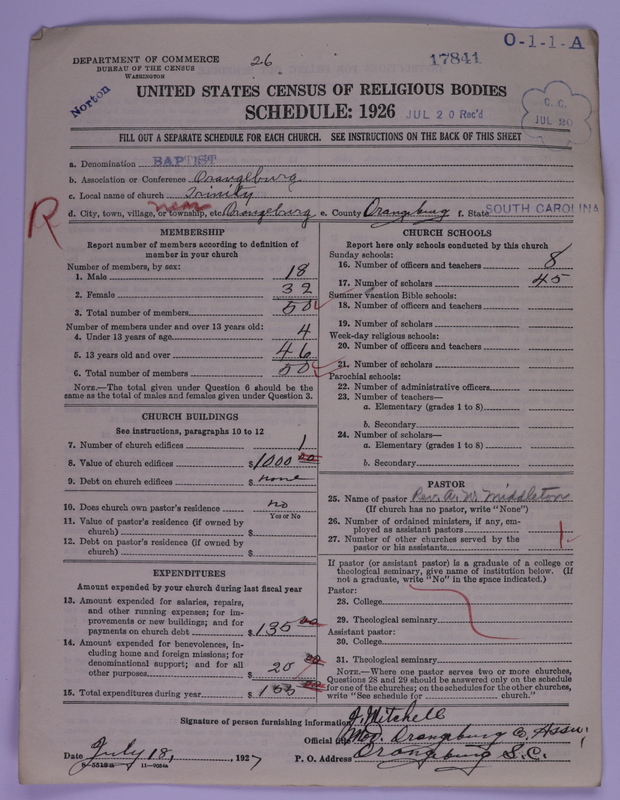 O-1-1-A
DEPARTMENT OF COMMERCE
BUREAU OF THE CENSUS
WASHINGTON
26
17841
Norton
UNITED STATES CENSUS OF RELIGIOUS BODIES
SCHEDULE: 1926
JUL 20 Rec'd
C. C.
JUL 20
FILL OUT A SEPARATE SCHEDULE FOR EACH CHURCH. SEE INSTRUCTIONS ON THE BACK OF THIS SHEET
a. Denomination BAPTIST
b. Association or Conference Orangeburg
c. Local name of church Trinity
near
d. City, town, village, or township, etc. Orangeburg e. County Orangeburg f. State SOUTH CAROLINA
R
MEMBERSHIP
Report number of members according to definition of
member in your church
Number of members, by sex:
1. Male 18
2. Female 32
3. Total number of members 50
Number of members under and over 13 years old:
4. Under 13 years of age 4
5. 13 years old and over 46
6. Total number of members 50
NOTE.—The total given under Question 6 should be the
same as the total of males and females given under Question 3.
CHURCH BUILDINGS
See instructions, paragraphs 10 to 12
7. Number of church edifices 1
8. Value of church edifices $1000 00
9. Debt on church edifices $ none
10. Does church own pastor's residence no
Yes or No
11. Value of pastor's residence (if owned by
church) $
12. Debt on pastor's residence (if owned by
church) $
EXPENDITURES
Amount expended by your church during last fiscal year
13. Amount expended for salaries, repairs,
and other running expenses; for im-
provements or new buildings; and for
payments on church debt $135 00
14. Amount expended for benevolences, in-
cluding home and foreign missions; for
denominational support; and for all
other purposes $ 20 00
15. Total expenditures during year $ 00
CHURCH SCHOOLS
Report here only schools conducted by this church
Sunday schools:
16. Number of officers and teachers 8
17. Number of scholars 45
Summer vacation Bible schools:
18. Number of officers and teachers
19. Number of scholars
Week-day religious schools:
20. Number of officers and teachers
21. Number of scholars
Parochial schools:
22. Number of administrative officers
23. Number of teachers—
a. Elementary (grades 1 to 8)
b. Secondary
24. Number of scholars—
a. Elementary (grades 1 to 8)
b. Secondary
PASTOR
25. Name of pastor Rev. A. W. Middleton
(If church has no pastor, write "None")
26. Number of ordained ministers, if any, em-
ployed as assistant pastors
27. Number of other churches served by the
pastor or his assistants 1
If pastor (or assistant pastor) is a graduate of a college or
theological seminary, give name of institution below. (If
not a graduate, write "No" in the space indicated.)
Pastor:
28. College
29. Theological seminary
Assistant pastor:
30. College
31. Theological seminary
NOTE.—Where one pastor serves two or more churches,
Questions 28 and 29 should be answered only on the schedule
for one of the churches; on the schedules for the other churches,
write "See schedule for church."
Signature of person furnishing information J. Mitchell
Official title Mod. Orangeburg Co. Assn.
Date July 18, 1927 P. O. Address Orangeburg S.C.
11—9054a